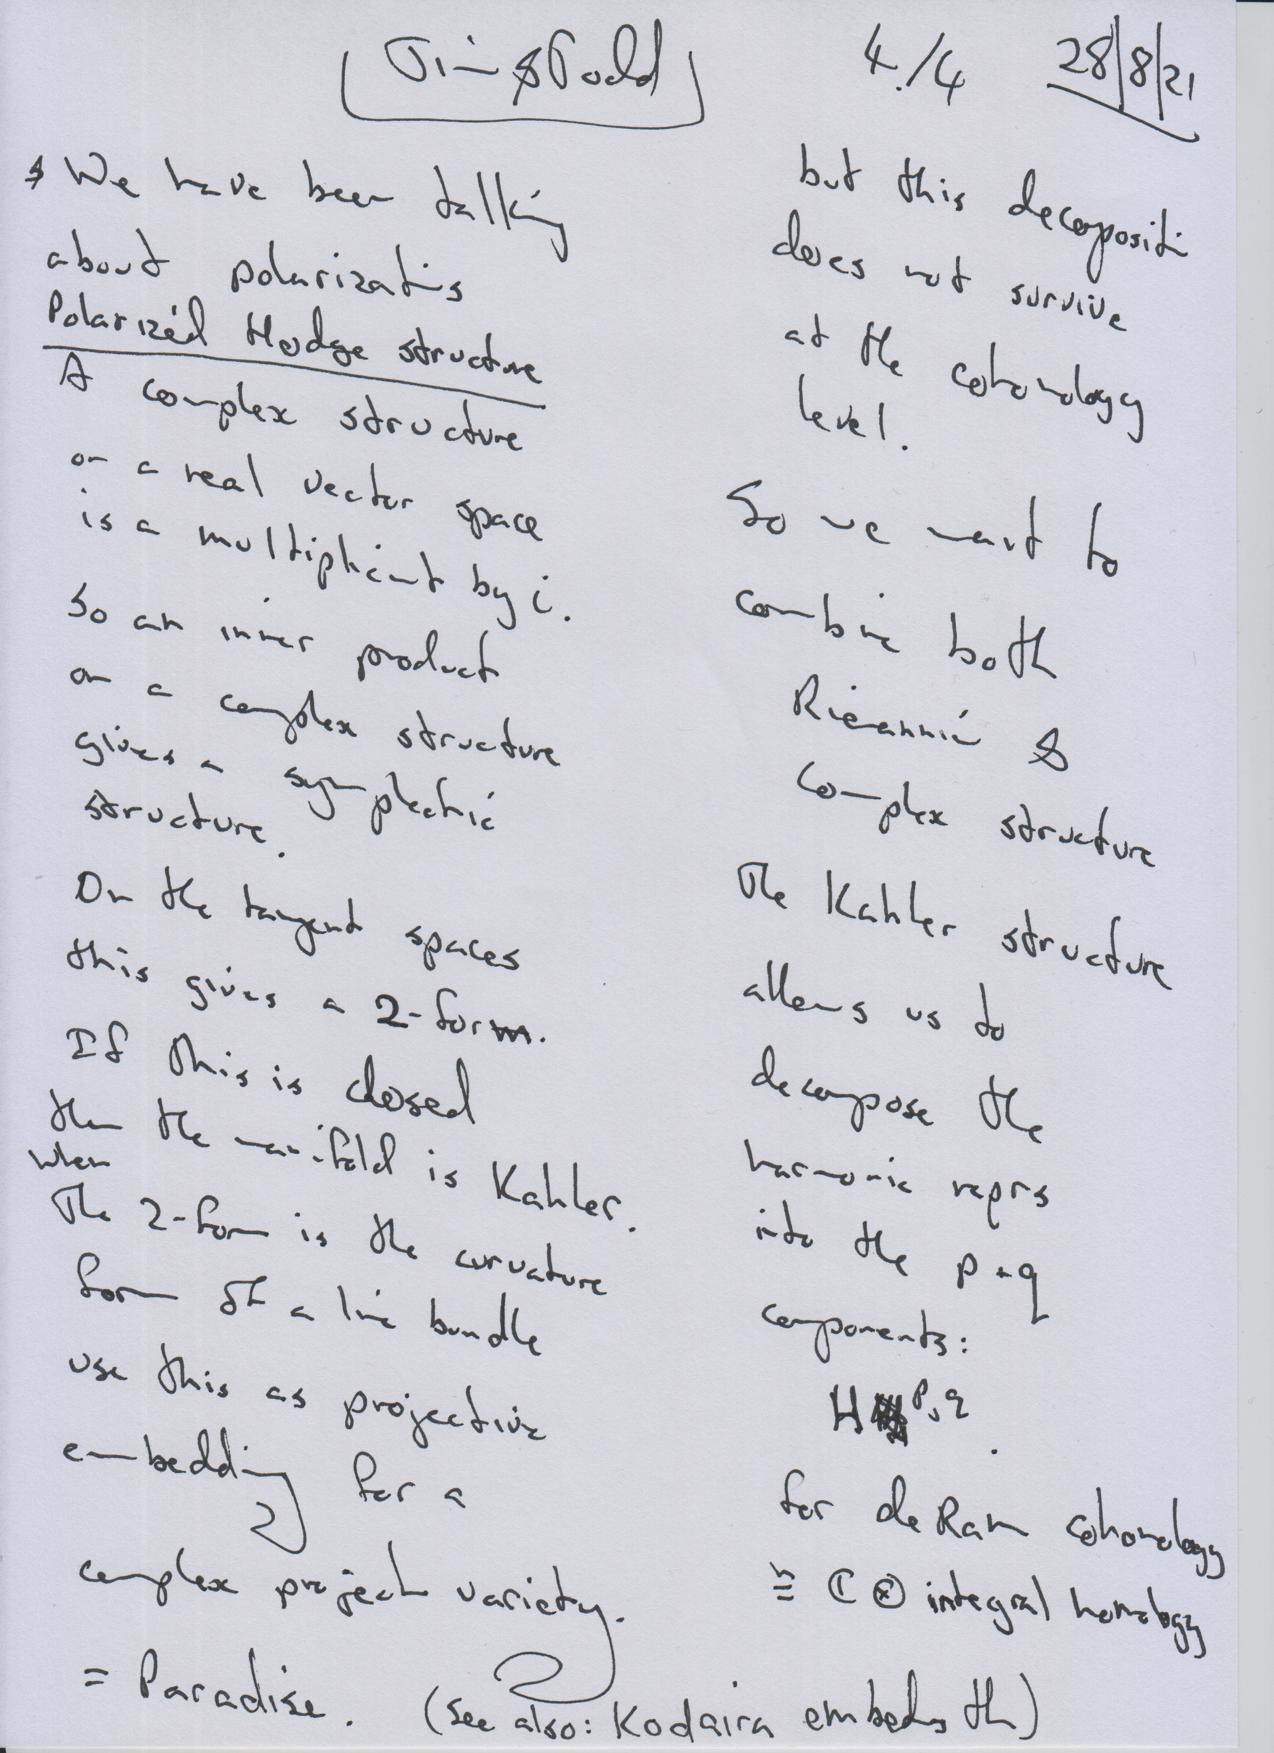 Tim & Todd
4./4
28/8/21
We have been talking
about polarizatis
Polarized Hodge structure
A complex structure
on a real vector space
is a multiplicant by i.
So an inner product
on a complex structure
gives a symplectic
structure.
On the tangent spaces
this gives a 2-form.
If this is closed
then the manifold is Kahler.
When
The 2-form is the curvature
form of a line bundle
use this as projective
embedding for a
complex project variety.
= Paradise. (see also: Kodaira embeds th)
but this decompositi
does not survive
at the cohomology
level.
So we want to
combine both
Riemannic &
complex structure
The Kahler structure
allows us to
decompose the
harmonic reprs
into the p+q
components:
H p,q.
for deRam cohomology
≅ ℂ ⊗ integral homology